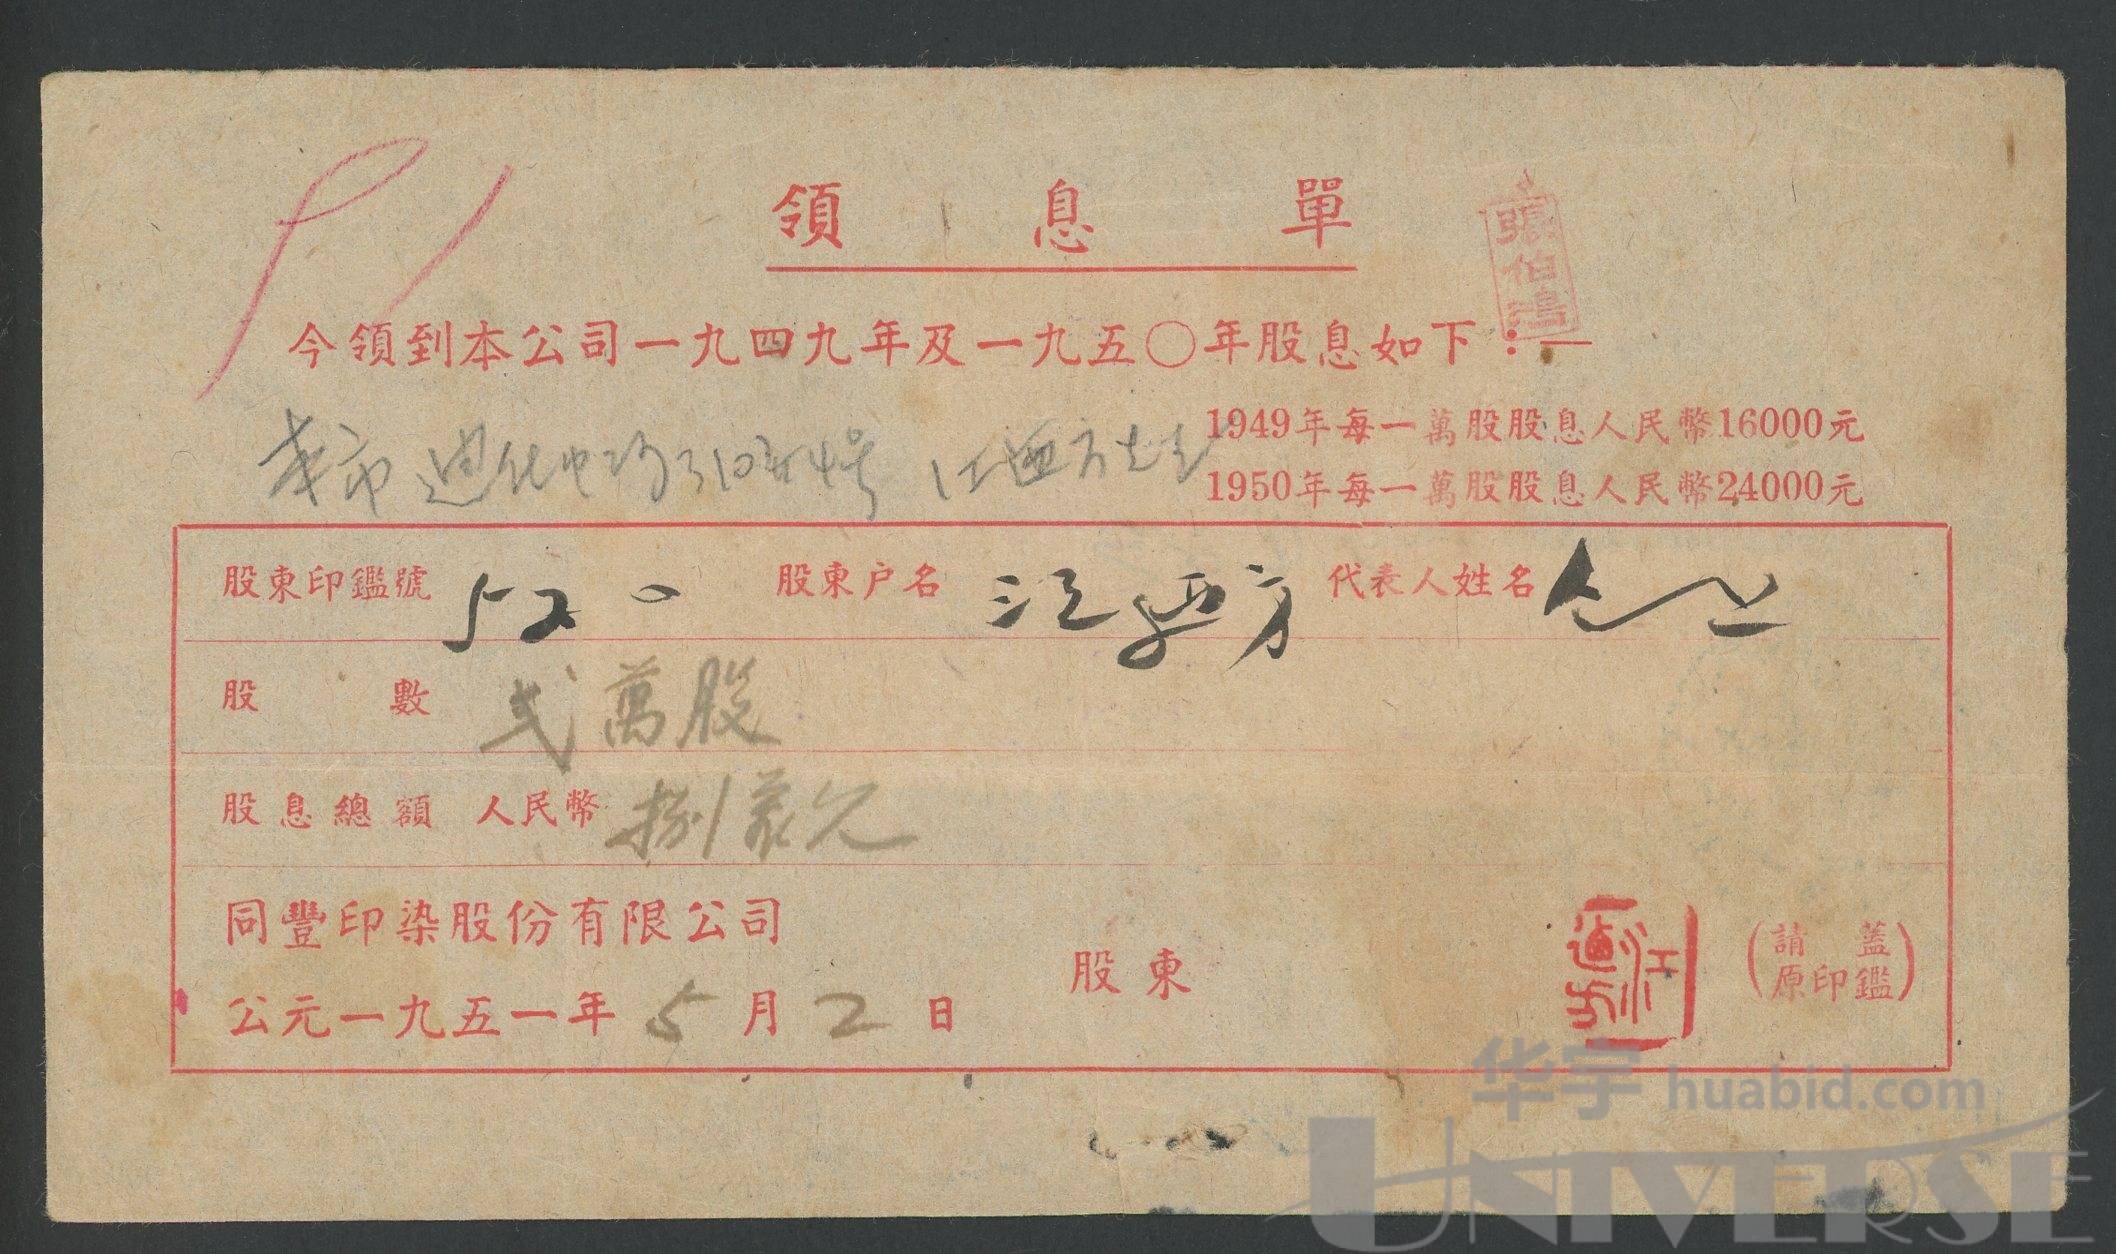 領息單
張伯鴻
今領到本公司一九四九年及一九五〇年股息如下：—
1949年每一萬股股息人民幣16000元
本市迪化中路310弄4号 江迺方先生
1950年每一萬股股息人民幣24000元
股東印鑑號 520 股東户名 江迺方 代表人姓名 仝上
股數 弍萬股
股息總額 人民幣 捌萬元
同豐印染股份有限公司
股東 江迺方 (請蓋原印鑑)
公元一九五一年5月2日
华宇 huabid.com
UNIVERSE